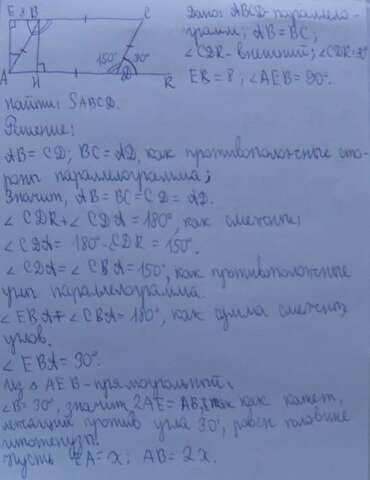 E 8 B C
150° 30°
A H D R
Дано: ABCD-параллело-
грамм; AB=BC;
∠CDR-внешний; ∠CDR=30°
EB = 8; ∠AEB=90°.
Найти: SABCD.
Решение:
AB = CD; BC = AD, как противоположные сто-
роны параллелограмма;
Значит, AB = BC = CD = AD.
∠CDR + ∠CDA = 180°, как смежные;
∠CDA = 180° - CDR = 150°.
∠CDA = ∠CBA = 150°, как противоположные
углы параллелограмма.
∠EBA + ∠CBA = 180°, как сумма смежных
углов.
∠EBA = 30°.
Из △ AEB - прямоугольный.
∠B = 30°, значит 2AE = AB, так как катет,
лежащий против угла 30°, равен половине
гипотенузы.
Пусть EA = x; AB = 2x.